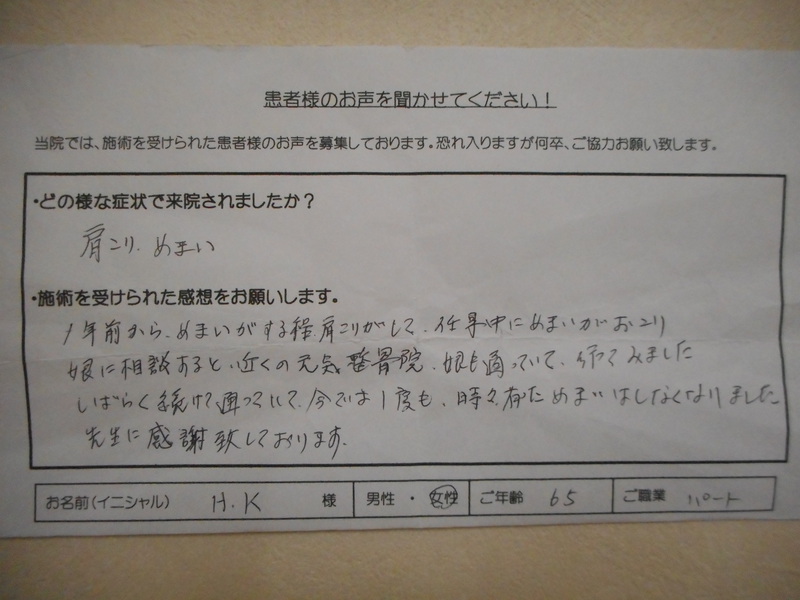 患者様のお声を聞かせてください！
当院では、施術を受けられた患者様のお声を募集しております。恐れ入りますが何卒、ご協力お願い致します。
・どの様な症状で来院されましたか？
肩こり、めまい
・施術を受けられた感想をお願いします。
1年前から、めまいがする程、肩こりがして、仕事中にめまいがおこり
娘に相談すると、近くの元気整骨院、娘も通っていて、行ってみました
しばらく続けて通っていて、今では1度も、時々有っためまいはしなくなりました
先生に感謝致しております。
お名前(イニシャル) H.K 様 男性 ・ 女性 ご年齢 65 ご職業 パート